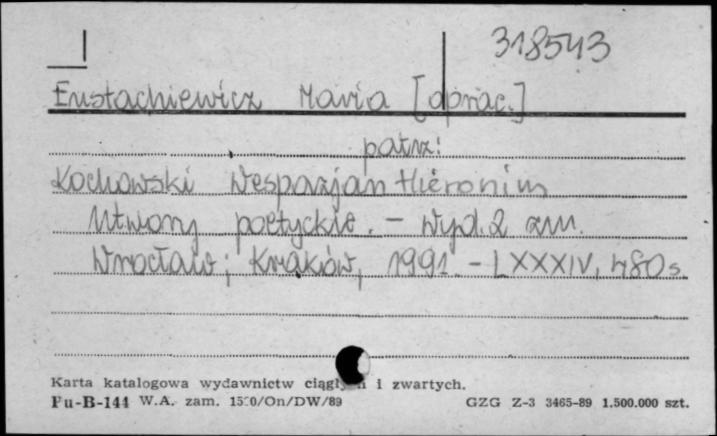 318543
Eustachiewicz Maria [oprac.]
patrz:
Kochowski Wespazjan Hieronim
Utwory poetyckie. - Wyd. 2 zm.
Wrocław; Kraków, 1991. - LXXXIV, 480 s.
Karta katalogowa wydawnictw i zwartych.
Pu-B-144 W.A. zam. /On/DW/89 GZG Z-3 3465-89 1.500.000 szt.